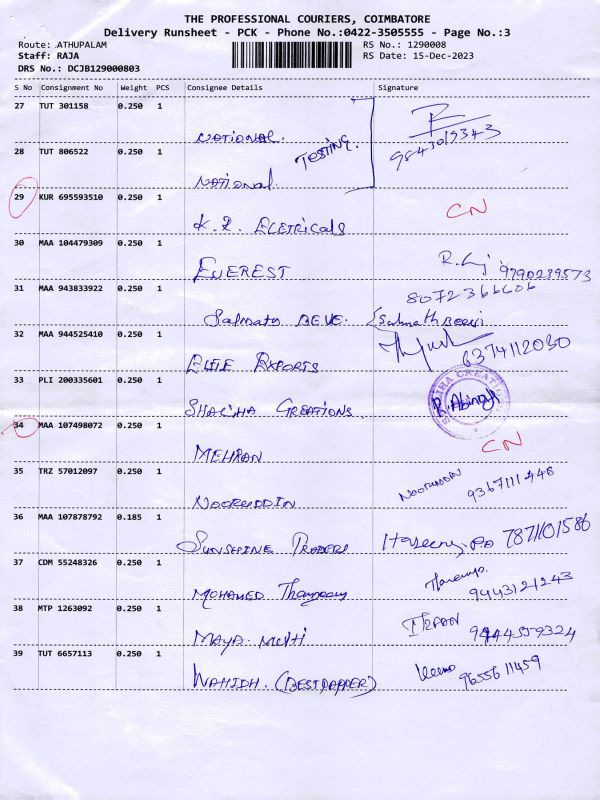 THE PROFESSIONAL COURIERS, COIMBATORE
Delivery Runsheet - PCK - Phone No.:0422-3505555 - Page No.:3
Route: ATHUPALAM RS No.: 1290008
Staff: RAJA RS Date: 15-Dec-2023
DRS No.: DCJB129000803
S No Consignment No Weight PCS Consignee Details Signature
27 TUT 301158 0.250 1
NATIONAL. TESTING. 9843019343
28 TUT 806522 0.250 1
National.
29 KUR 695593510 0.250 1 CN
K.R. ELETRICALS
30 MAA 104479309 0.250 1
EVEREST 9790239573
31 MAA 943833922 0.250 1 8072366606
BEVE.
32 MAA 944525410 0.250 1
ELITE EXPORTS 6374112030
33 PLI 200335601 0.250 1
SHALIHA CREATIONS R. Abinaya
34 MAA 107498072 0.250 1 CN
MEHRAN
35 TRZ 57012097 0.250 1
NOORUDDIN NOORUDDIN 9367111448
36 MAA 107878792 0.185 1
SUNSHINE TRADERS 7871101586
37 CDM 55248326 0.250 1
MOHAMED 9443121243
38 MTP 1263092 0.250 1
MAYA IRFAN 9444559324
39 TUT 6657113 0.250 1
WAHIDH. 9655611459